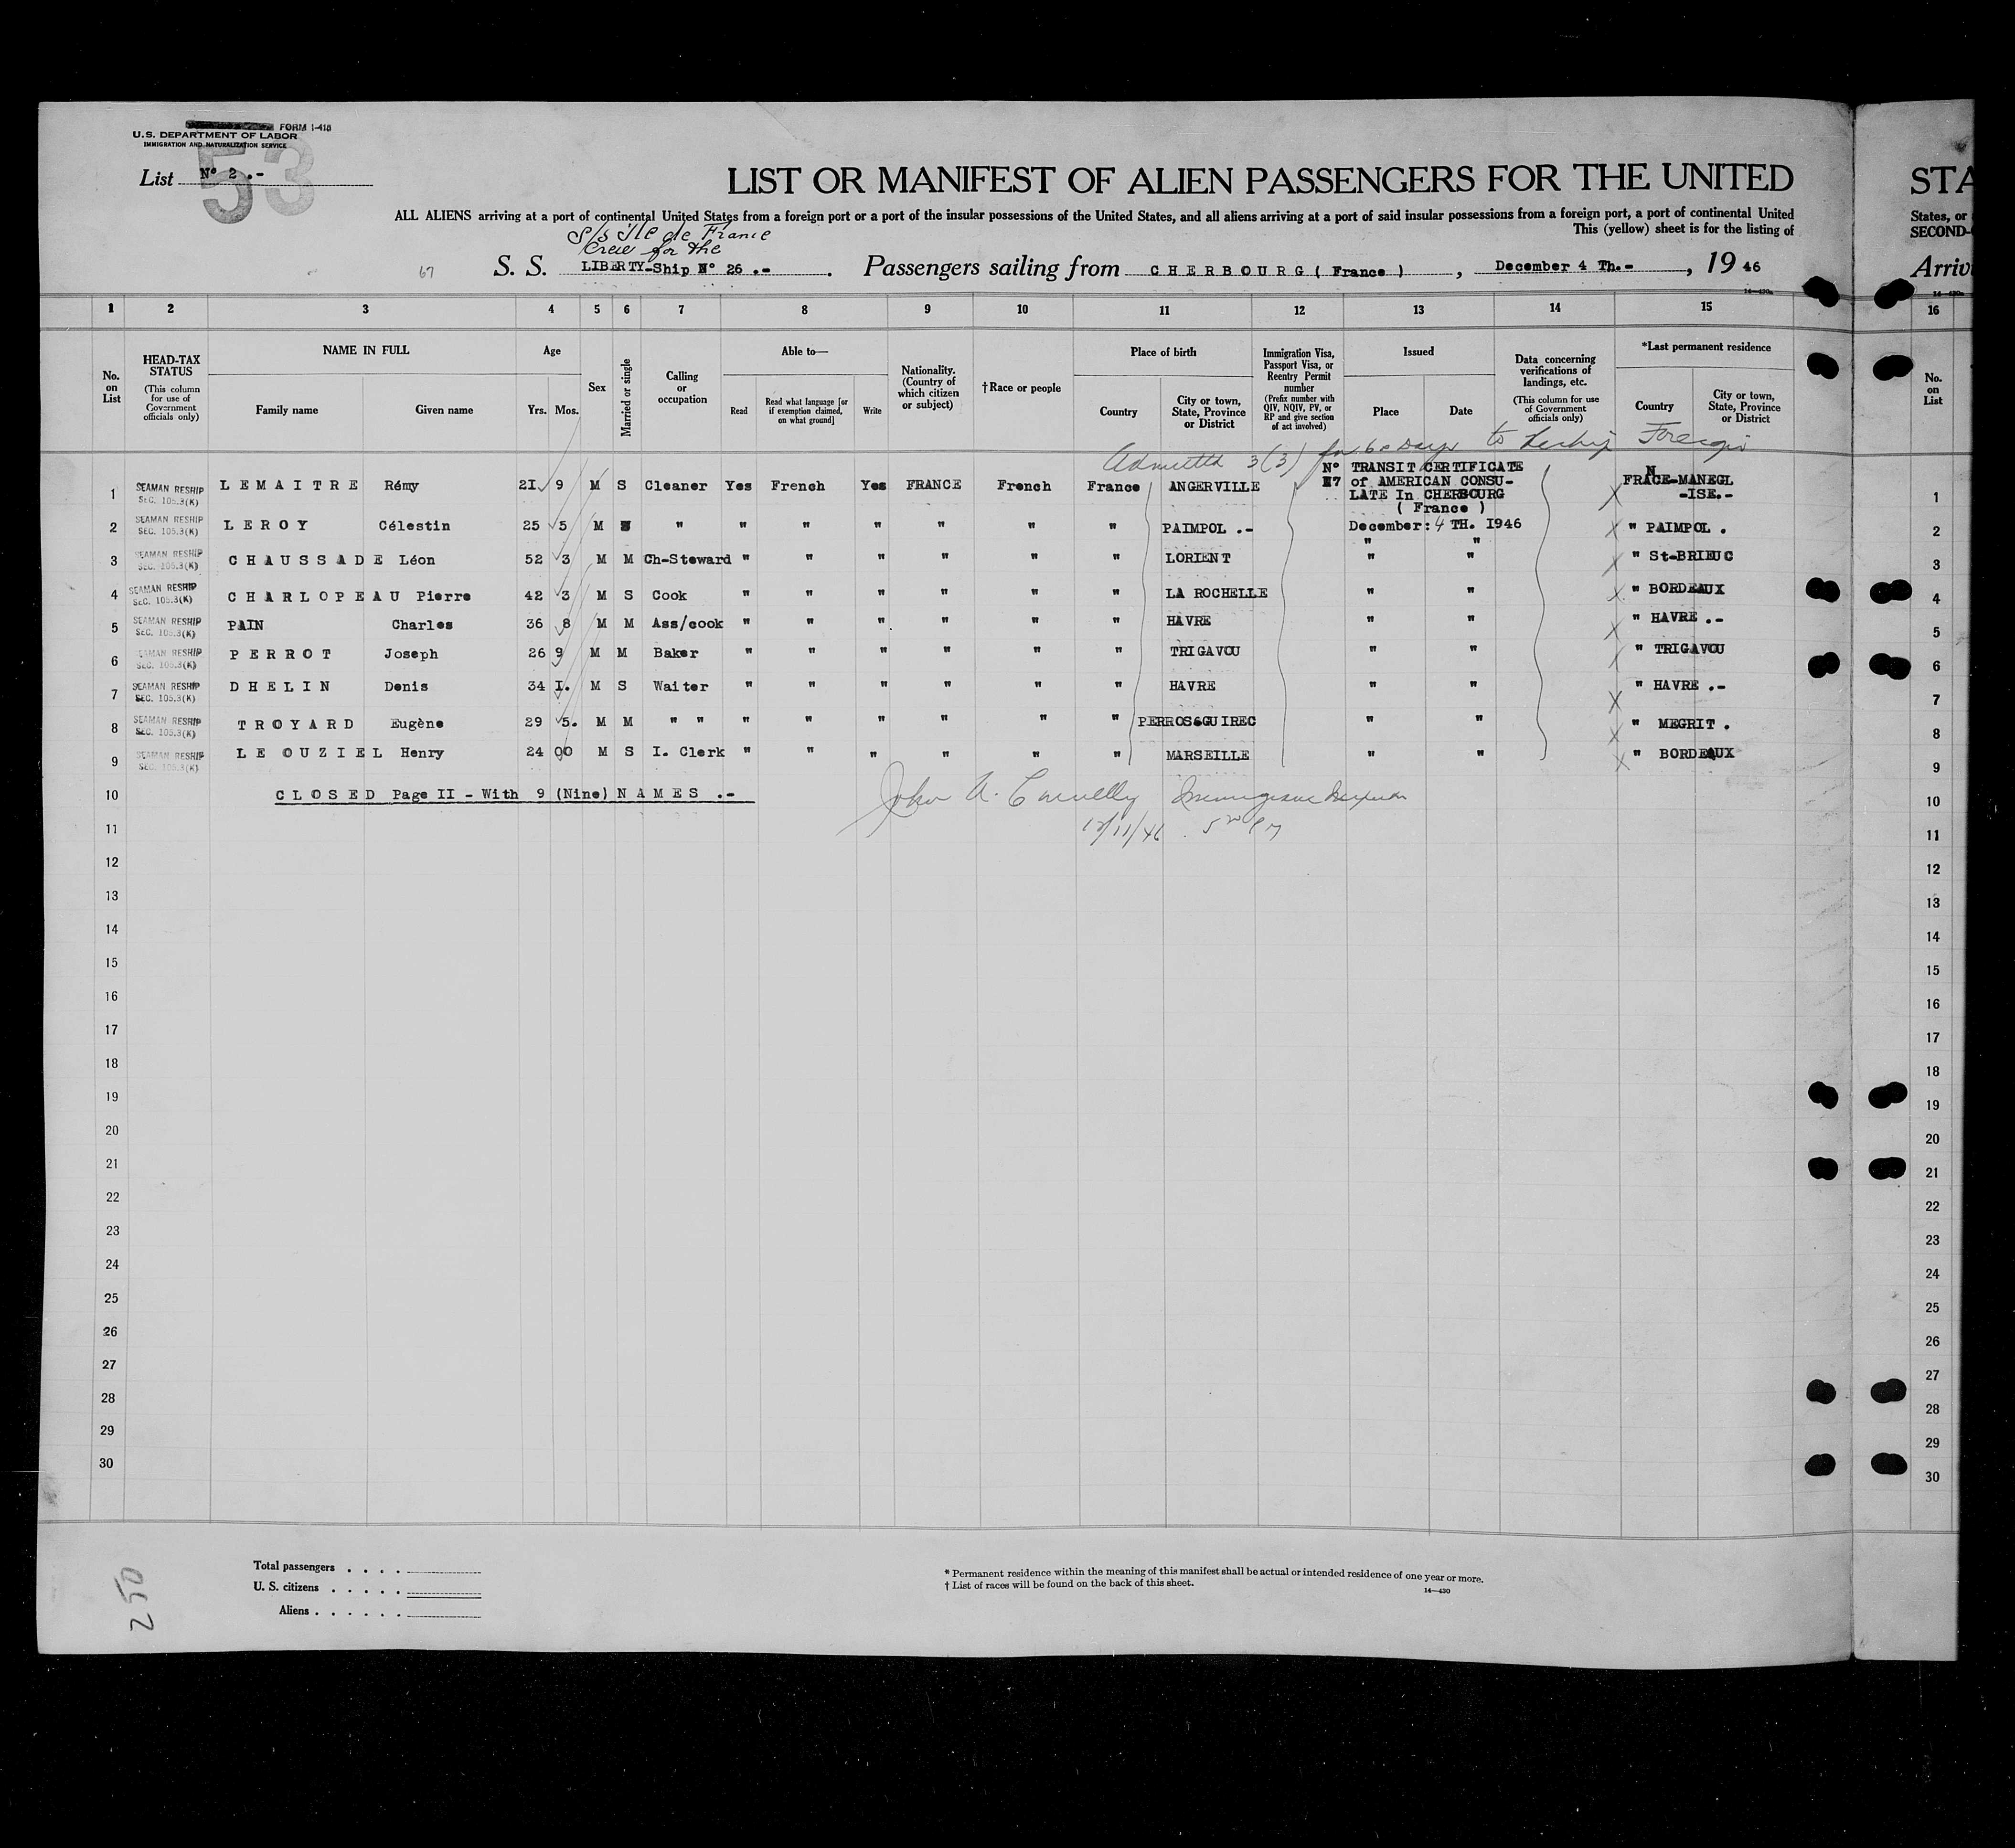 FORM I-418
U.S. DEPARTMENT OF LABOR
IMMIGRATION AND NATURALIZATION SERVICE
53
List Nº 2 .-
LIST OR MANIFEST OF ALIEN PASSENGERS FOR THE UNITED
STA
ALL ALIENS arriving at a port of continental United States from a foreign port or a port of the insular possessions of the United States, and all aliens arriving at a port of said insular possessions from a foreign port, a port of continental United
States, or
This (yellow) sheet is for the listing of
SECOND-
S/s Ile de France
Crew for the
67
S. S. LIBERTY-Ship Nº 26 .- . Passengers sailing from CHERBOURG ( France ) , December 4 Th.- , 19 46
Arriv
14—430a
1 2 3 4 5 6 7 8 9 10 11 12 13 14 15 16
No. on List
HEAD-TAX STATUS (This column for use of Government officials only)
NAME IN FULL Family name Given name
Age Yrs. Mos.
Sex
Married or single
Calling or occupation
Able to— Read Read what language [or if exemption claimed, on what ground] Write
Nationality. (Country of which citizen or subject)
†Race or people
Place of birth Country City or town, State, Province or District
Immigration Visa, Passport Visa, or Reentry Permit number (Prefix number with QIV, NQIV, PV, or RP and give section of act involved)
Issued Place Date
Data concerning verifications of landings, etc. (This column for use of Government officials only)
*Last permanent residence Country City or town, State, Province or District
No. on List
Admitted 3(3) for 60 Days to Reship Foreign
1 SEAMAN RESHIP SEC. 105.3(K) LEMAITRE Rémy 2I 9 M S Cleaner Yes French Yes FRANCE French France ANGERVILLE Nº TRANSIT CERTIFICATE of AMERICAN CONSU- LATE In CHERBOURG ( France ) FRACE-MANEGL -ISE.- 1
2 SEAMAN RESHIP SEC. 105.3(K) LEROY Célestin 25 5 M " " " " " " " PAIMPOL .- December: 4 TH. I946 " PAIMPOL . 2
3 SEAMAN RESHIP SEC. 105.3(K) CHAUSSADE Léon 52 3 M M Ch-Steward " " " " " " LORIENT " " " St-BRIEUC 3
4 SEAMAN RESHIP SEC. 105.3(K) CHARLOPEAU Pierre 42 3 M S Cook " " " " " " LA ROCHELLE " " " BORDEAUX 4
5 SEAMAN RESHIP SEC. 105.3(K) PAIN Charles 36 8 M M Ass/cook " " " " " " HAVRE " " " HAVRE .- 5
6 SEAMAN RESHIP SEC. 105.3(K) PERROT Joseph 26 9 M M Baker " " " " " " TRIGAVOU " " " TRIGAVOU 6
7 SEAMAN RESHIP SEC. 105.3(K) DHELIN Denis 34 I. M S Waiter " " " " " " HAVRE " " " HAVRE .- 7
8 SEAMAN RESHIP SEC. 105.3(K) TROYARD Eugène 29 5. M M " " " " " " " " PERROS&GUIREC " " " MEGRIT . 8
9 SEAMAN RESHIP SEC. 105.3(K) LE OUZIEL Henry 24 00 M S I. Clerk " " " " " " MARSEILLE " " " BORDEAUX 9
10 CLOSED Page II - With 9 (Nine) NAMES .- 10
John A. Connelly
12/11/46
11 11
12 12
13 13
14 14
15 15
16 16
17 17
18 18
19 19
20 20
21 21
22 22
23 23
24 24
25 25
26 26
27 27
28 28
29 29
30 30
250
Total passengers . . . .
U. S. citizens . . . . .
Aliens . . . . . .
* Permanent residence within the meaning of this manifest shall be actual or intended residence of one year or more.
† List of races will be found on the back of this sheet.
14—430